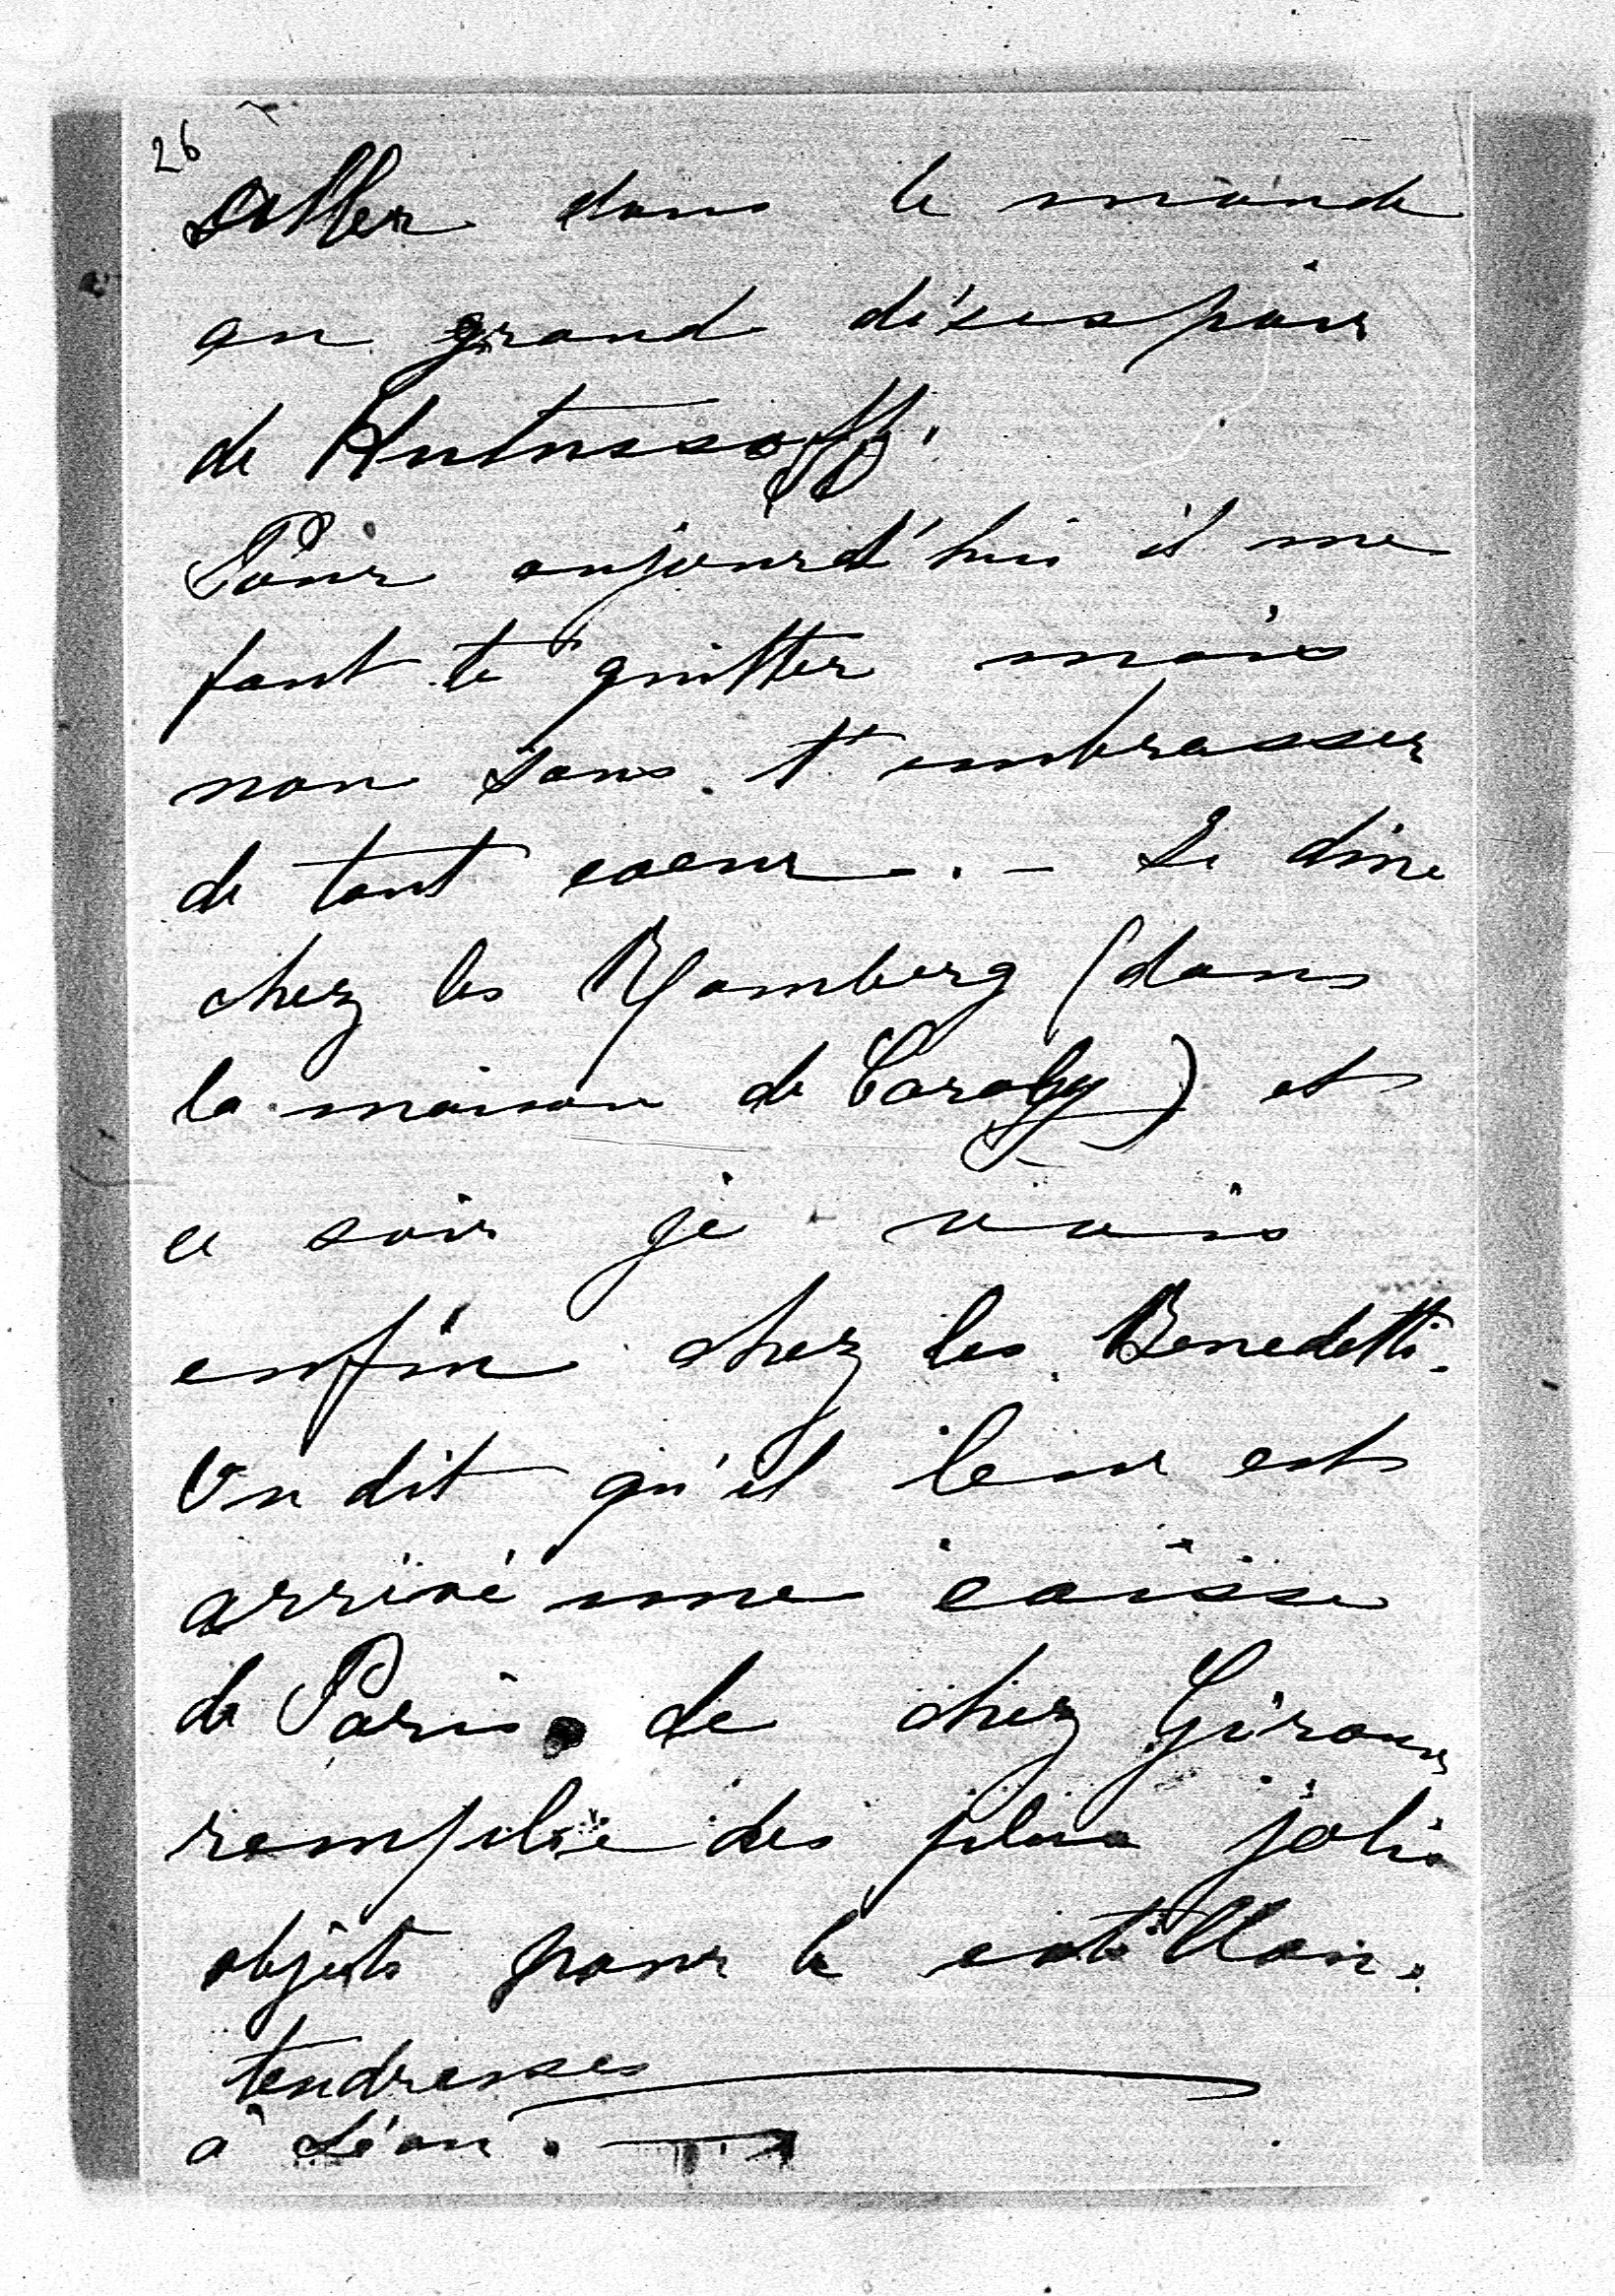 26
d'aller dans le monde
au grand désespoir
de Kutusoff.
Pour aujourd'hui il me
faut te quitter mais
non sans t'embrasser
de tout coeur. — Je dîne
chez les Romberg (dans
la maison de Caraby) et
ce soir je vais
enfin chez les Benedetti.
On dit qu'il leur est
arrivé une caisse
de Paris de chez Giroux
remplie des plus jolis
objets pour le cotillon.
tendresses
à Léon.